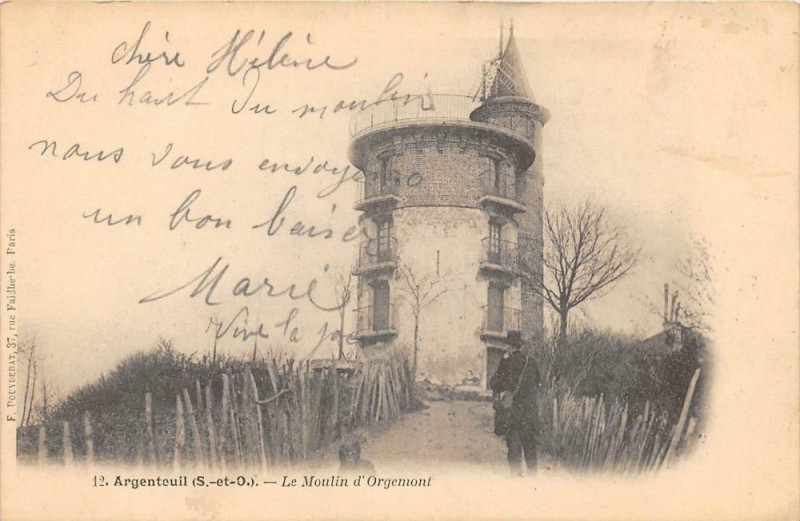 chère Hélène
Du haut du moulin
nous vous envoyons
un bon baiser
Marie
Vive la joie
F. POUYDEBAT, 37, rue Faidherbe. Paris
12. Argenteuil (S.-et-O.). — Le Moulin d'Orgemont